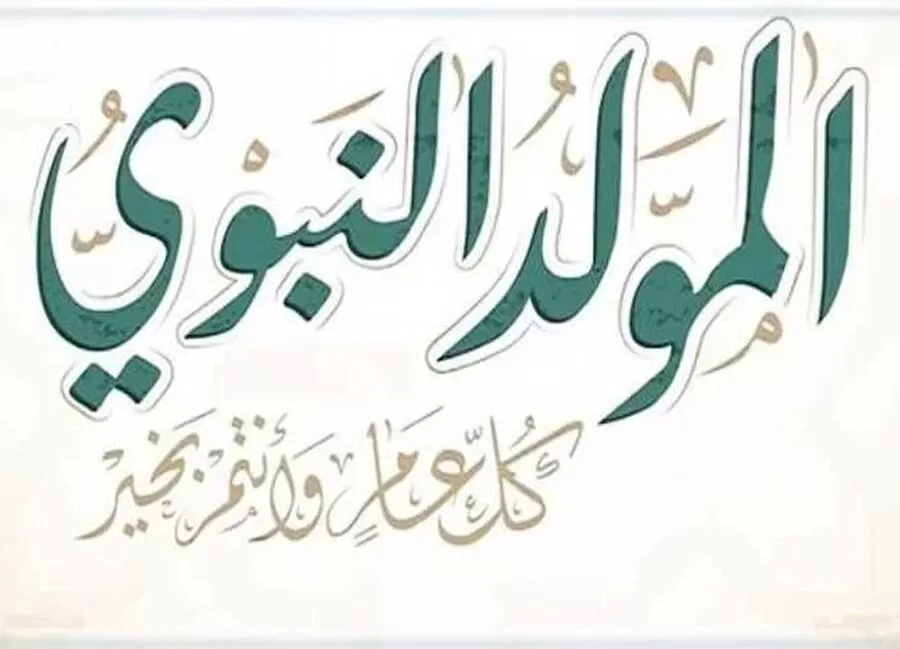 المَولِدُ النَّبَوْيُّ
كُلُّ عَامٍ وَأَنْتُمْ بِخَيْر